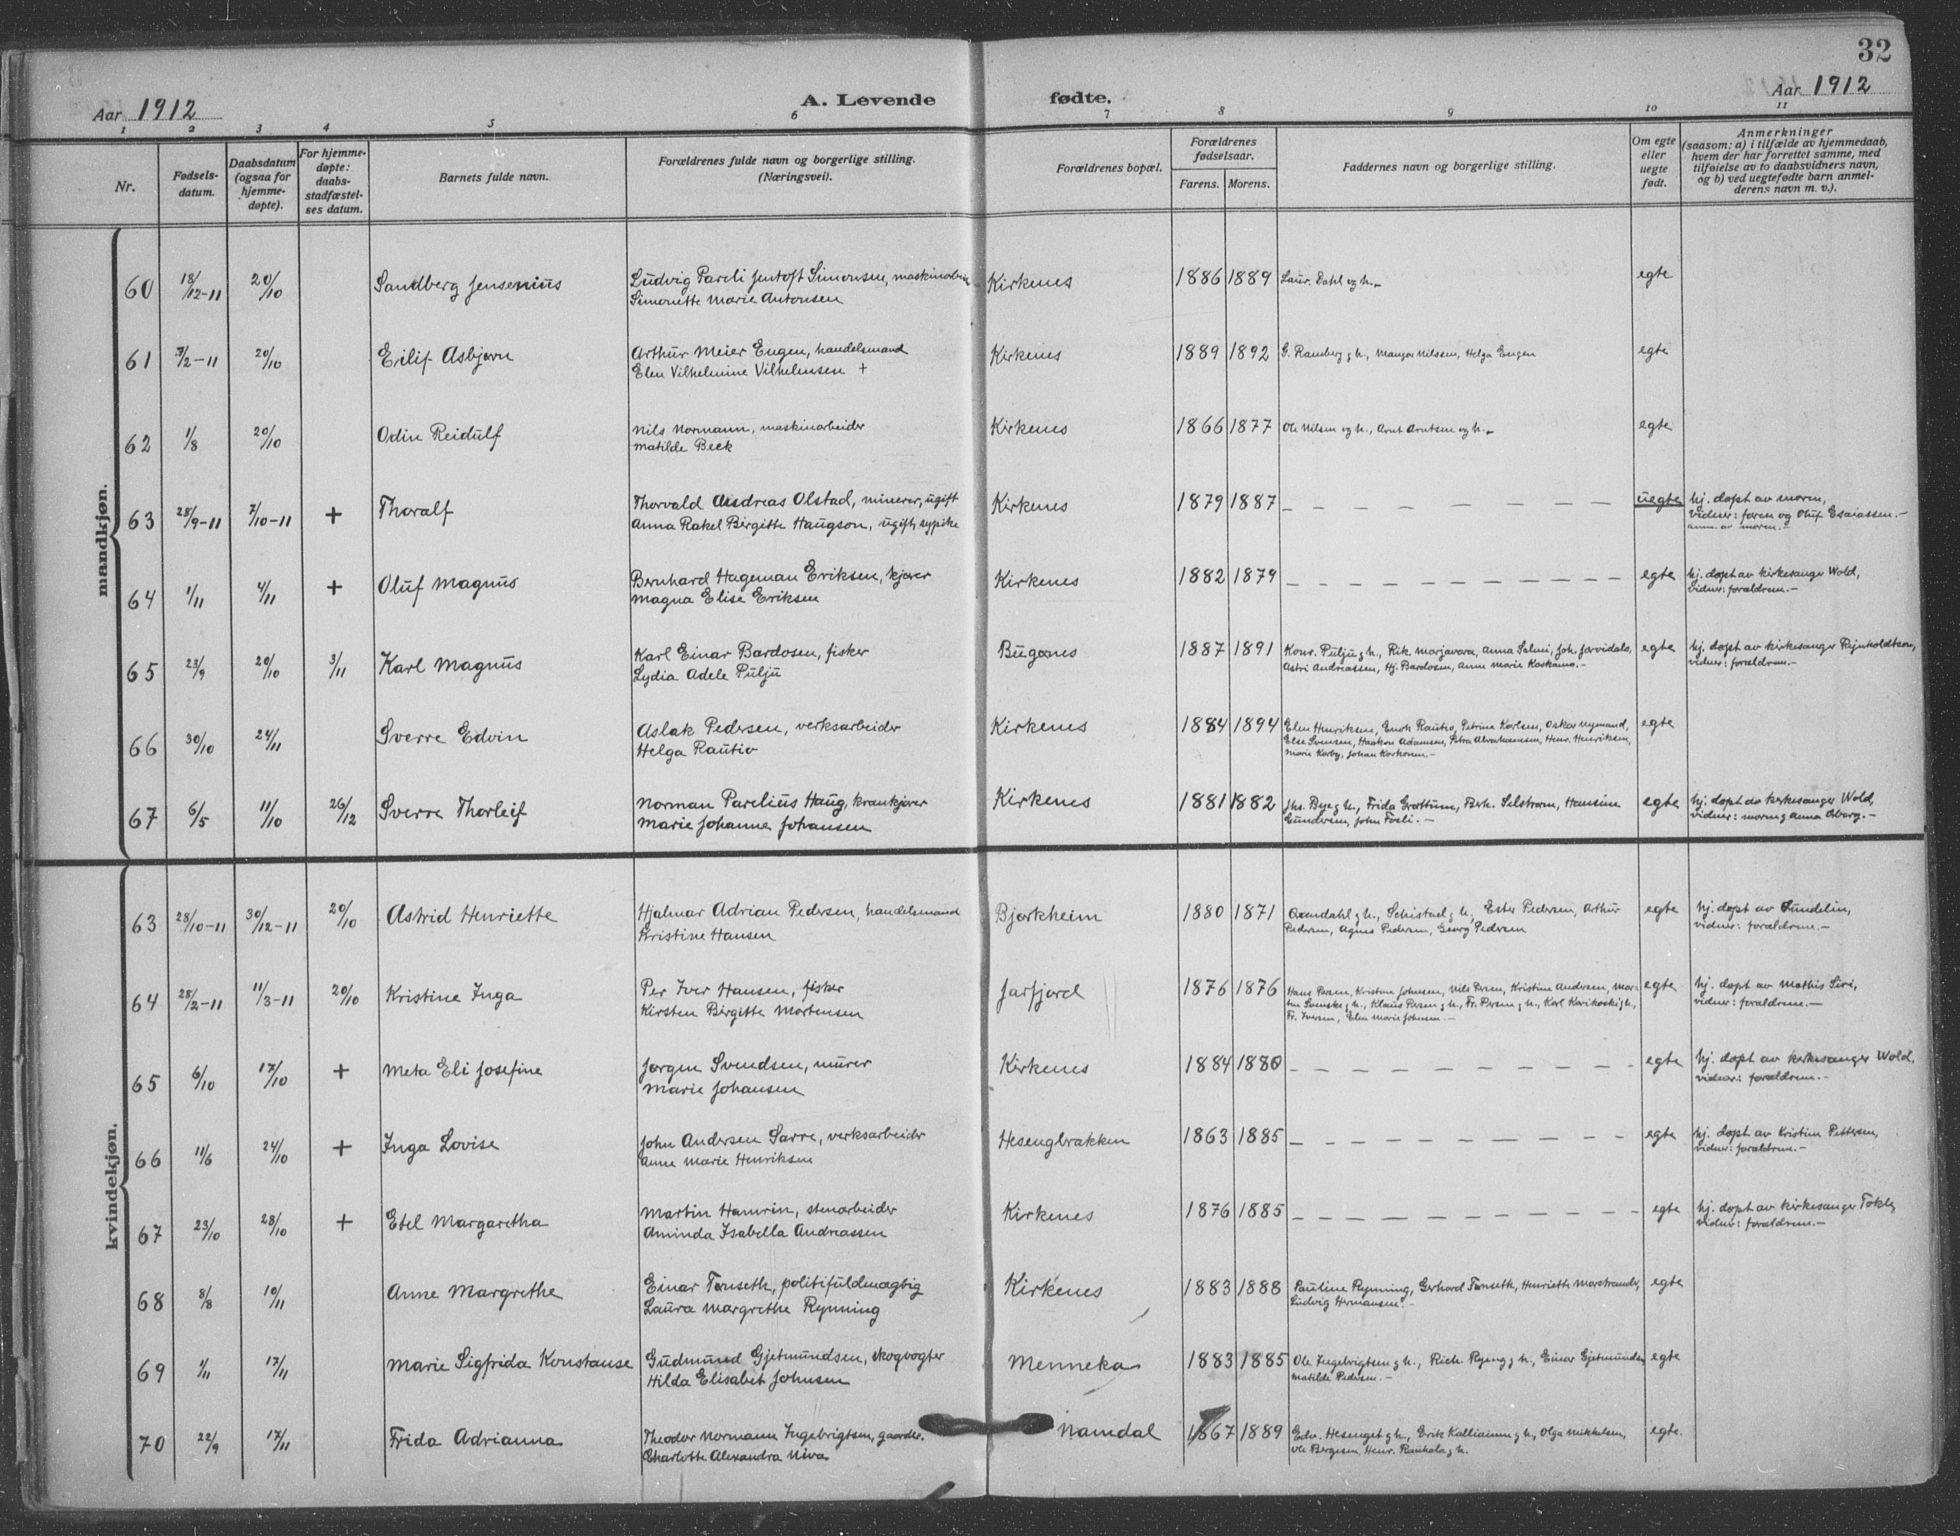 32
Aar 1912
A. Levende
fødte.
Aar 1912
1 2 3 4 5 6 7 8 9 10 11
Nr.
Fødsels-
datum.
Daabsdatum
(ogsaa for
hjemme-
døpte).
For hjemme-
døpte:
daabs-
stadfæstel-
ses datum.
Barnets fulde navn.
Forældrenes fulde navn og borgerlige stilling.
(Næringsvei).
Forældrenes bopæl.
Forældrenes
fødselsaar.
Farens. Morens.
Faddernes navn og borgerlige stilling.
Om egte
eller
uegte
født.
Anmerkninger
(saasom: a) i tilfælde av hjemmedaab,
hvem der har forrettet samme, med
tilføielse av to daabsvidners navn,
og b) ved uegtefødte barn anmel-
derens navn m. v.).
mandkjøn.
60 18/12-11 20/10 Sandberg Jensenius Ludvig Pareli Jentoft Simonsen, maskinarb. Kirkenes 1886 1889 Laur. Dahl og h. egte
Simonette Marie Antonsen
61 7/2-11 20/10 Eilif Asbjørn Arthur Meier Eugen, handelsmand Kirkenes 1889 1892 G. Ramberg g h., Mangor Nilssen, Helga Eugen egte
Elen Vilhelmine Vilhelmsen +
62 1/8 20/10 Odin Reidulf Nils Normann, maskinarbeider Kirkenes 1866 1877 Ole Nilsen og h., Arnt Arntsen og h. egte
Matilde Beck
63 28/9-11 7/10-11 + Thoralf Thorvald Andreas Olstad, minerer, ugift Kirkenes 1879 1887 uegte hj. døpt av moren,
Anna Rakel Birgitte Haugson, ugift, sypike vidner: faren og Oluf Esaiassen.-
anm. av moren.-
64 1/11 4/11 + Oluf Magnus Bernhard Hageman Eriksen, kjører Kirkenes 1882 1879 egte hj. døpt av kirkesanger Wold,
Magna Elise Eriksen vidner: forældrene.-
65 23/9 20/10 3/11 Karl Magnus Karl Einar Bardosen, fisker Bugønes 1887 1891 Konr. Pulju g h., Rik. Marjavara, Anna Salmi, Joh. Jarvidalo, egte hj. døpt av kirkesanger
Lydia Adele Pulju Astri Andreassen, Hj. Bardosen, Anne Marie Koskamo.- vidner: forældrene.-
66 30/10 24/11 Sverre Edvin Aslak Pedersen, verksarbeider Kirkenes 1884 1894 Elen Henriksen, Enok Rautio, Petrine Karlsen, Oskar Nymand, egte
Helga Rautio Else Svensen, Haakon Adamsen, Petra Abrahamsen, Henr. Henriksen,
Marie Korby, Johan Korhonen.-
67 6/5 11/10 26/12 Sverre Thorleif Norman Parelius Haug, krankjører Kirkenes 1881 1882 Jhs. Bye g h., Frida Grøttum, Berh. Selstrøm, Hansine egte hj. døpt av kirkesanger Wold,
Marie Johanne Johansen Gundersen, John Foeli.- vidner: moren g Anna Øberg.-
kvindekjøn.
63 28/10-11 30/12-11 20/10 Astrid Henriette Hjalmar Adrian Pedersen, handelsmand Bjørkheim 1880 1871 Oxendahl g h., Schistad g h., Ester Pedersen, Arthur egte hj. døpt av Sundelin,
Kristine Hansen Pedersen, Agnes Pedersen, Georg Pedersen vidner: forældrene.-
64 28/2-11 11/3-11 20/10 Kristine Inga Per Iver Hansen, fisker Jarfjord 1876 1876 Hans Persen, Kristine Johnsen, Nils Persen, Kristine Andersen, Mor- egte hj. døpt av Mathis Siri,
Kirsten Birgitte Mortensen ten Svenske g h., Klaus Persen g h., Fr. Persen g h., Karl Karikoski g h., vidner: forældrene.-
Fr. Iversen, Elen Marie Johnsen.-
65 6/10 17/10 + Meta Eli Josefine Jørgen Svendsen, murer Kirkenes 1884 1880 egte hj. døpt av kirkesanger Wold,
Marie Johansen vidner: forældrene.-
66 11/6 24/10 + Inga Lovise John Andersen Sarre, verksarbeider Hesengbrakken 1863 1885 egte hj. døpt av Kristine Pettersen,
Anne Marie Henriksen vidner: forældrene.-
67 23/10 28/10 + Etel Margaretha Martin Hamrin, stenarbeider Kirkenes 1876 1885 egte hj. døpt av kirkesanger Tokle,
Aminda Isabella Andreassen vidner: forældrene.-
68 8/8 10/11 Anne Margrethe Einar Tønseth, politifuldmægtig Kirkenes 1883 1888 Pauline Rynning, Gerhard Tønseth, Henriette Marstrander, egte
Laura Margrethe Rynning Ludvig Hermansen.-
69 1/11 17/11 Marie Sigfrida Konstanse Gudmund Gjetmundsen, skogvogter Menneka 1883 1885 Ole Ingebrigtsen g h., Rich. Ryeng g h., Einar Gjetmundsen, egte
Hilda Elisabet Johnsen Matilde Pedersen.-
70 22/9 17/11 Frida Adrianna Theodor Normann Ingebrigtsen, gaardbr. Namdal 1867 1889 Edv. Hesenget g h., Erik Kalliainen g h., Olga Mikkelsen, egte.
Charlotte Alexandra Niva Ole Bergesen, Henr. Raukala g h.